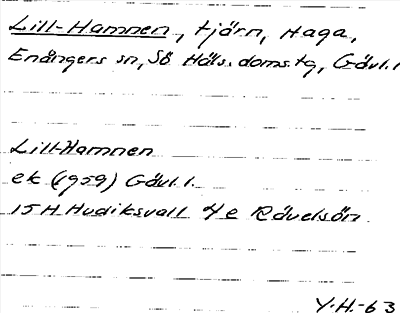 Lill-Hamnen, tjärn, Haga,
Enångers sn, Sö Häls. doms.tg, Gävl.l
Lill-Hamnen
ek (1959) Gävl.l.
15H Hudiksvall 4e Rävelsön
Y.H.-63